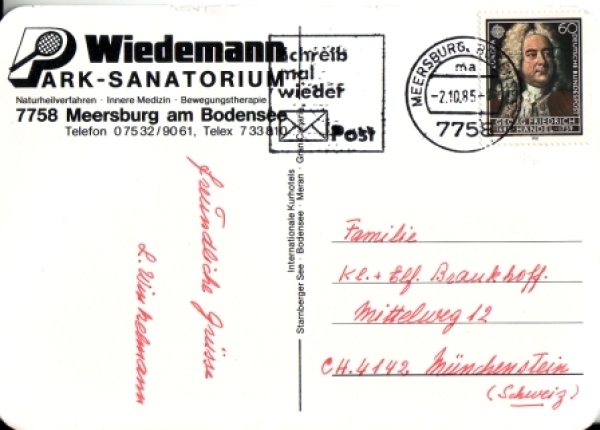 Wiedemann
PARK-SANATORIUM
Naturheilverfahren · Innere Medizin · Bewegungstherapie
7758 Meersburg am Bodensee
Telefon 0 75 32 / 90 61, Telex 7 33 810
Schreib
mal
wieder
Post
MEERSBURG,
ma
-2.10.85-
7758
60
DEUTSCHE BUNDESPOST
GEORG FRIEDRICH
HÄNDEL
1685 1759
Internationale Kurhotels
Starnberger See · Bodensee · Meran · Gran Canaria
freundliche Grüsse
L. Winkelmann
Familie
Kl. + Elf. Beaukhoff.
Mittelweg 12
CH. 4142. Münchenstein
(Schweiz)